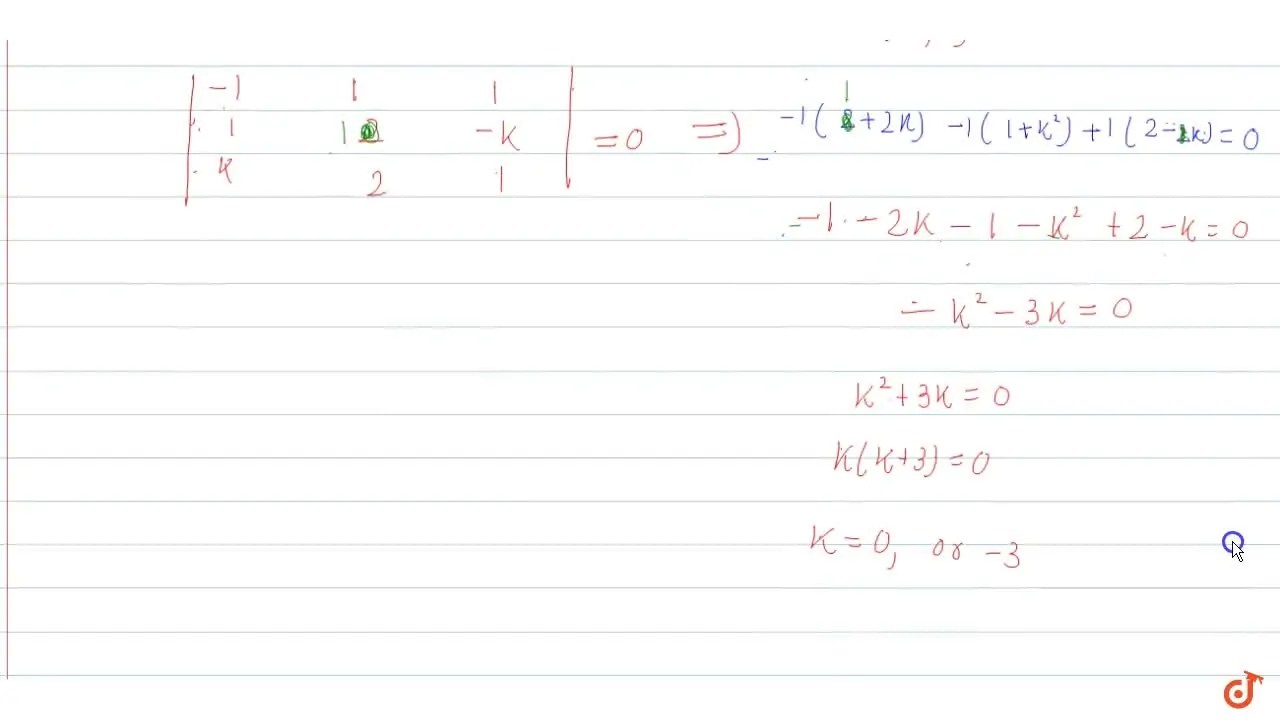 | -1 1 1 |
| 1 1 -k | = 0 ⇒ -1(1+2k) -1(1+k²) +1(2-k) = 0
| k 2 1 |
= -1 - 2k - 1 - k² + 2 - k = 0
- k² - 3k = 0
k² + 3k = 0
k(k+3) = 0
k = 0, or -3